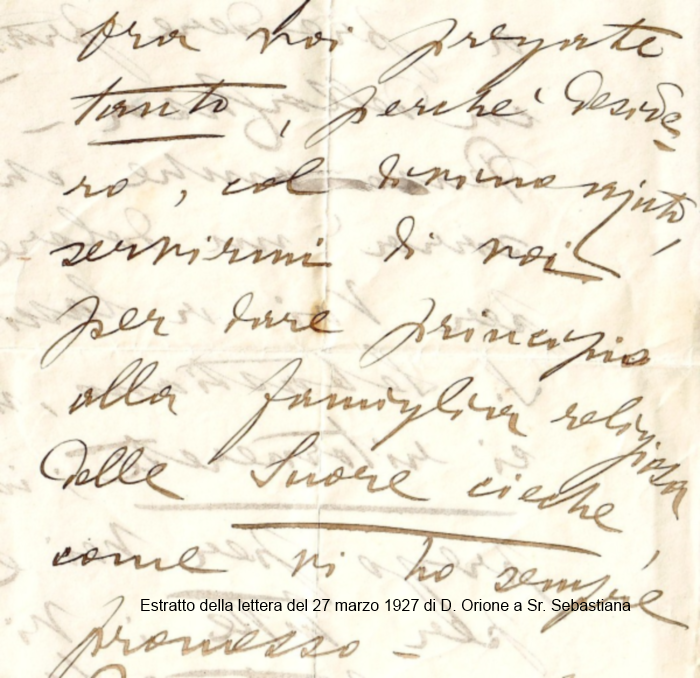 fra voi pregate
tanto, perché deside-
ro, col divino ajuto,
servirmi di voi
per dare principio
alla famiglia religiosa
delle Suore cieche,
come vi ho sempre
Estratto della lettera del 27 marzo 1927 di D. Orione a Sr. Sebastiana
promesso -